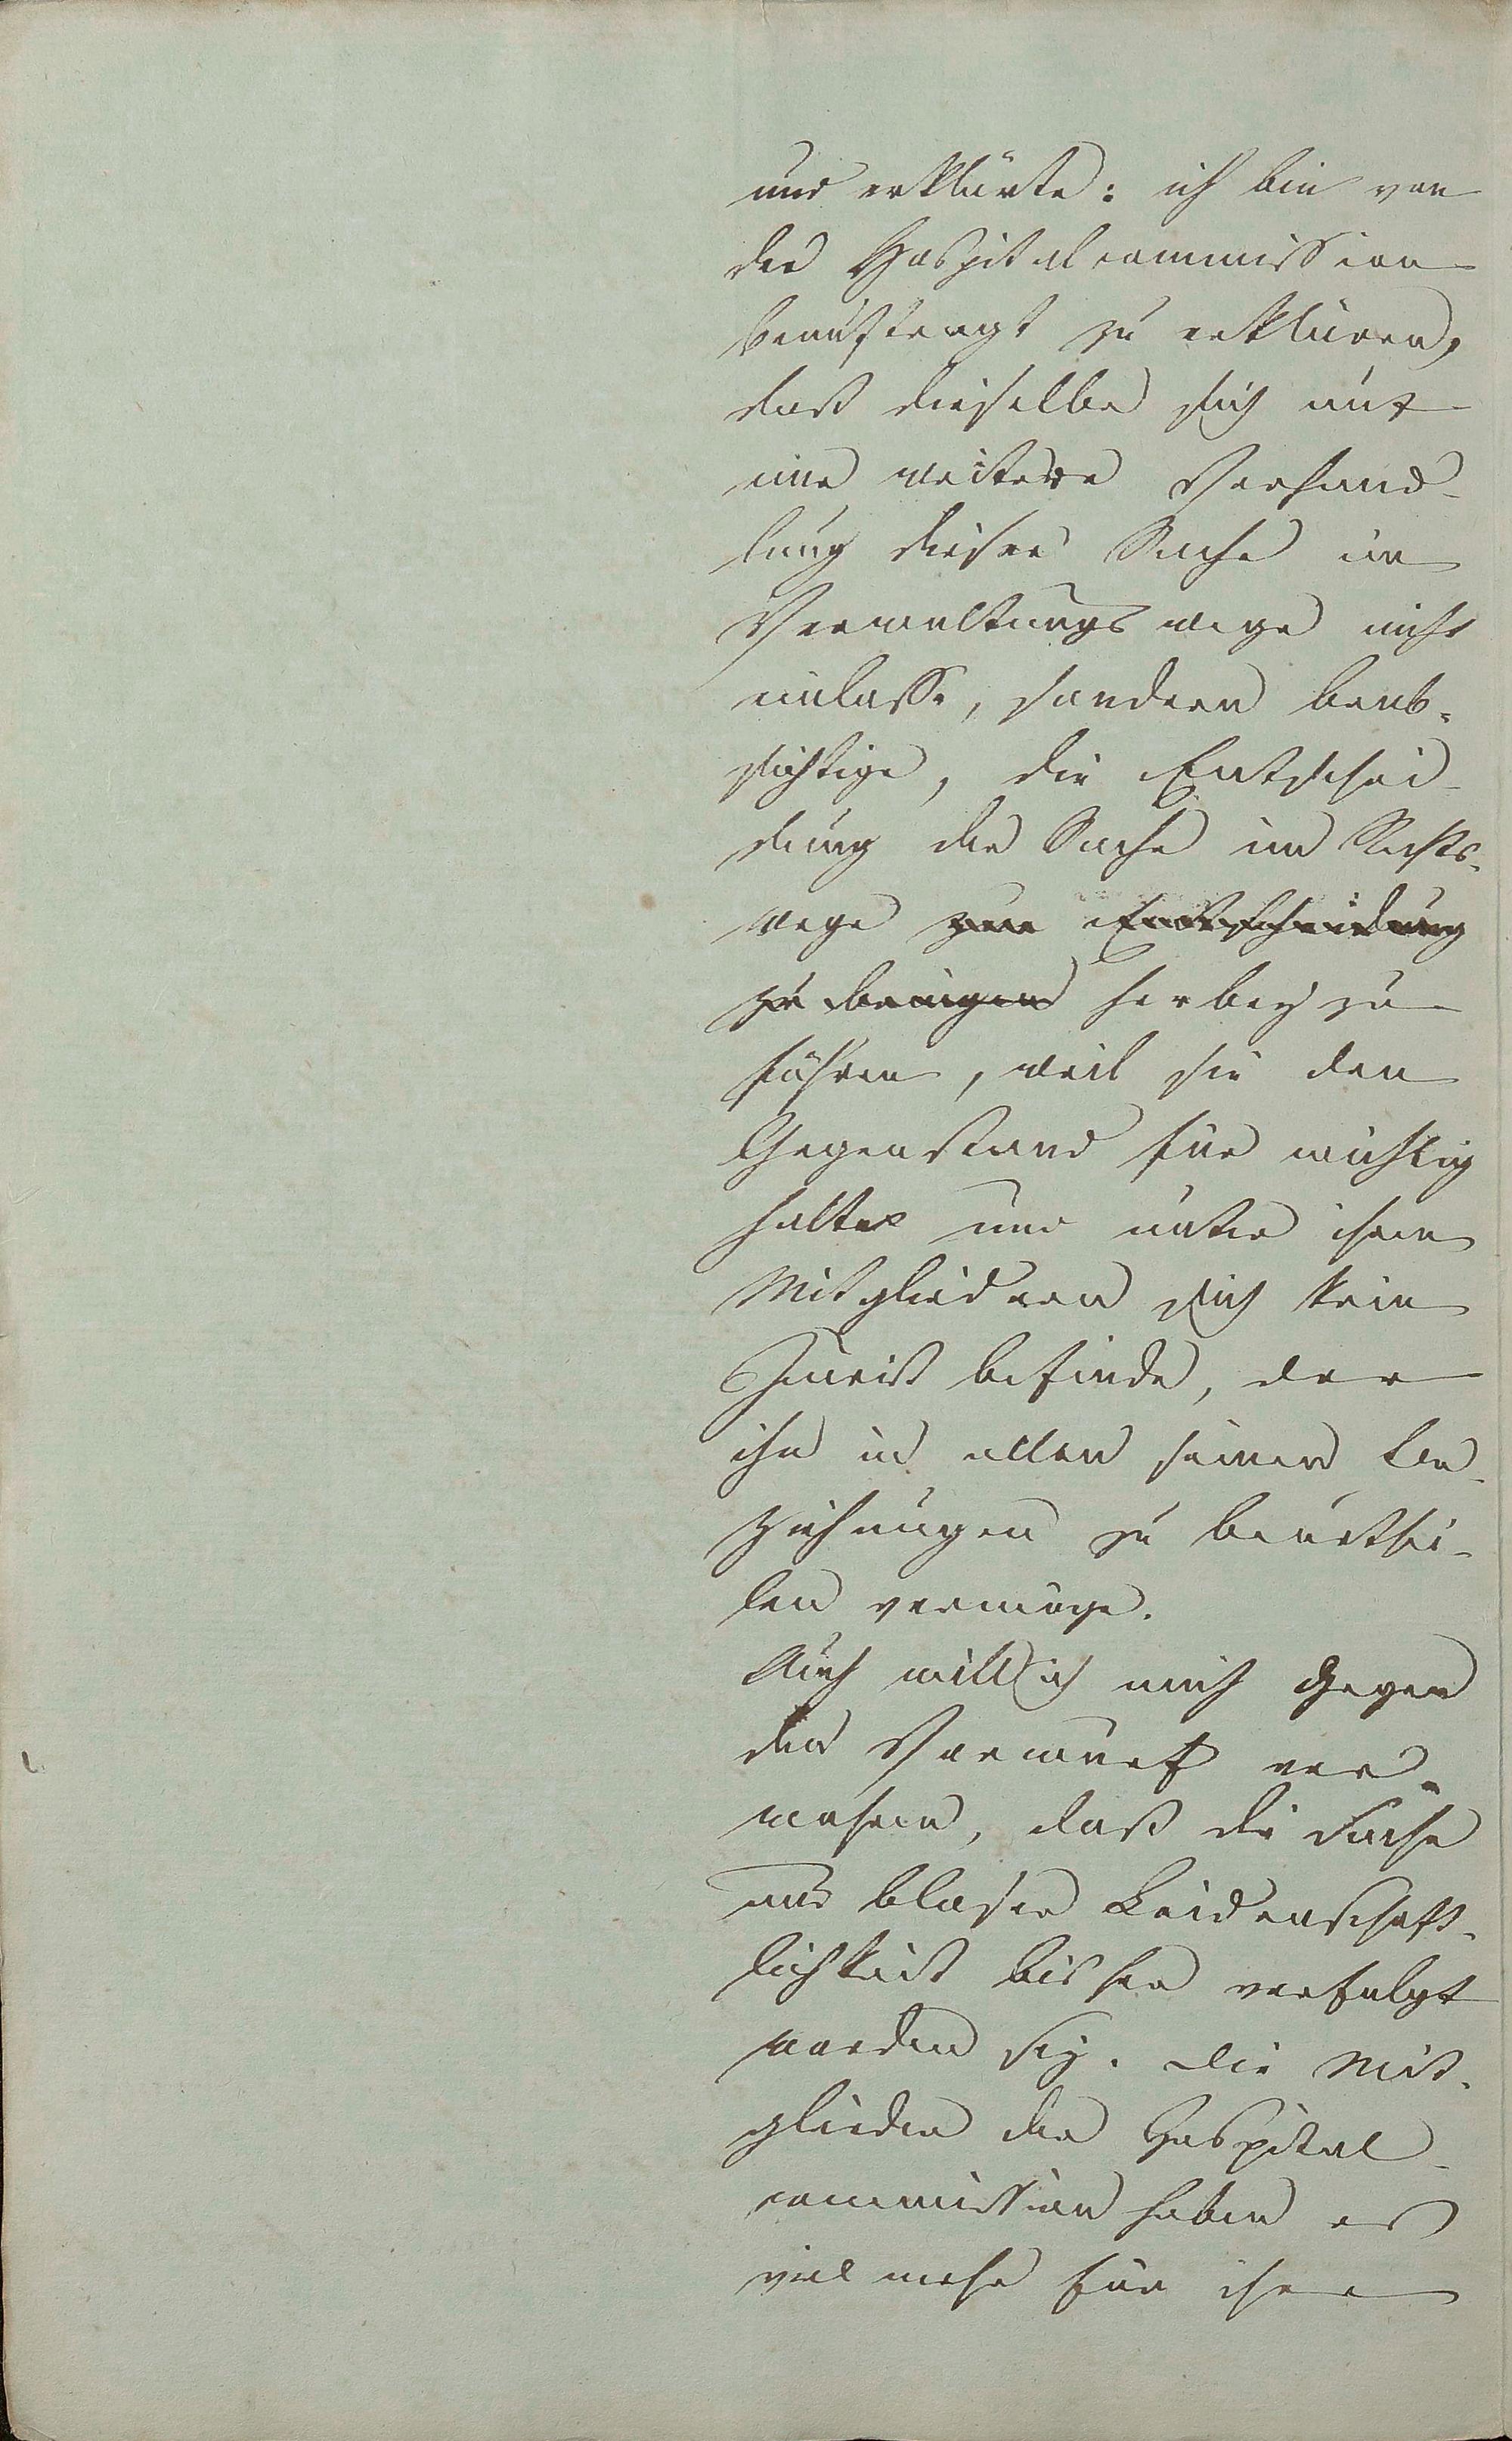 und erklärte: ich bin von
der Hospitalcommission
beauftragt zu erklären,
daß dieselbe sich auf
eine weitere Verhand-
lung dieser Sache im
Verwaltungswege nicht
einlasse, sondern beab-
sichtige, die Entschei-
dung der Sache im Rechts-
wege zur Entscheidung
zu bringen herbey zu
führen, weil sie den
Gegenstand für wichtig
halte und unter ihren
Mitgliedern sich kein
Jurist befinde, der
ihn in allen seinen Be-
ziehungen zu beurthei-
len vermöge.
Auch will ich mich gegen
den Vorwurf ver-
wahren, daß die Sache
aus bloser Leidenschaft-
lichkeit bisher verfolgt
worden sey. Die Mit-
glieder der Hospital-
commission haben es
viel mehr für ihre